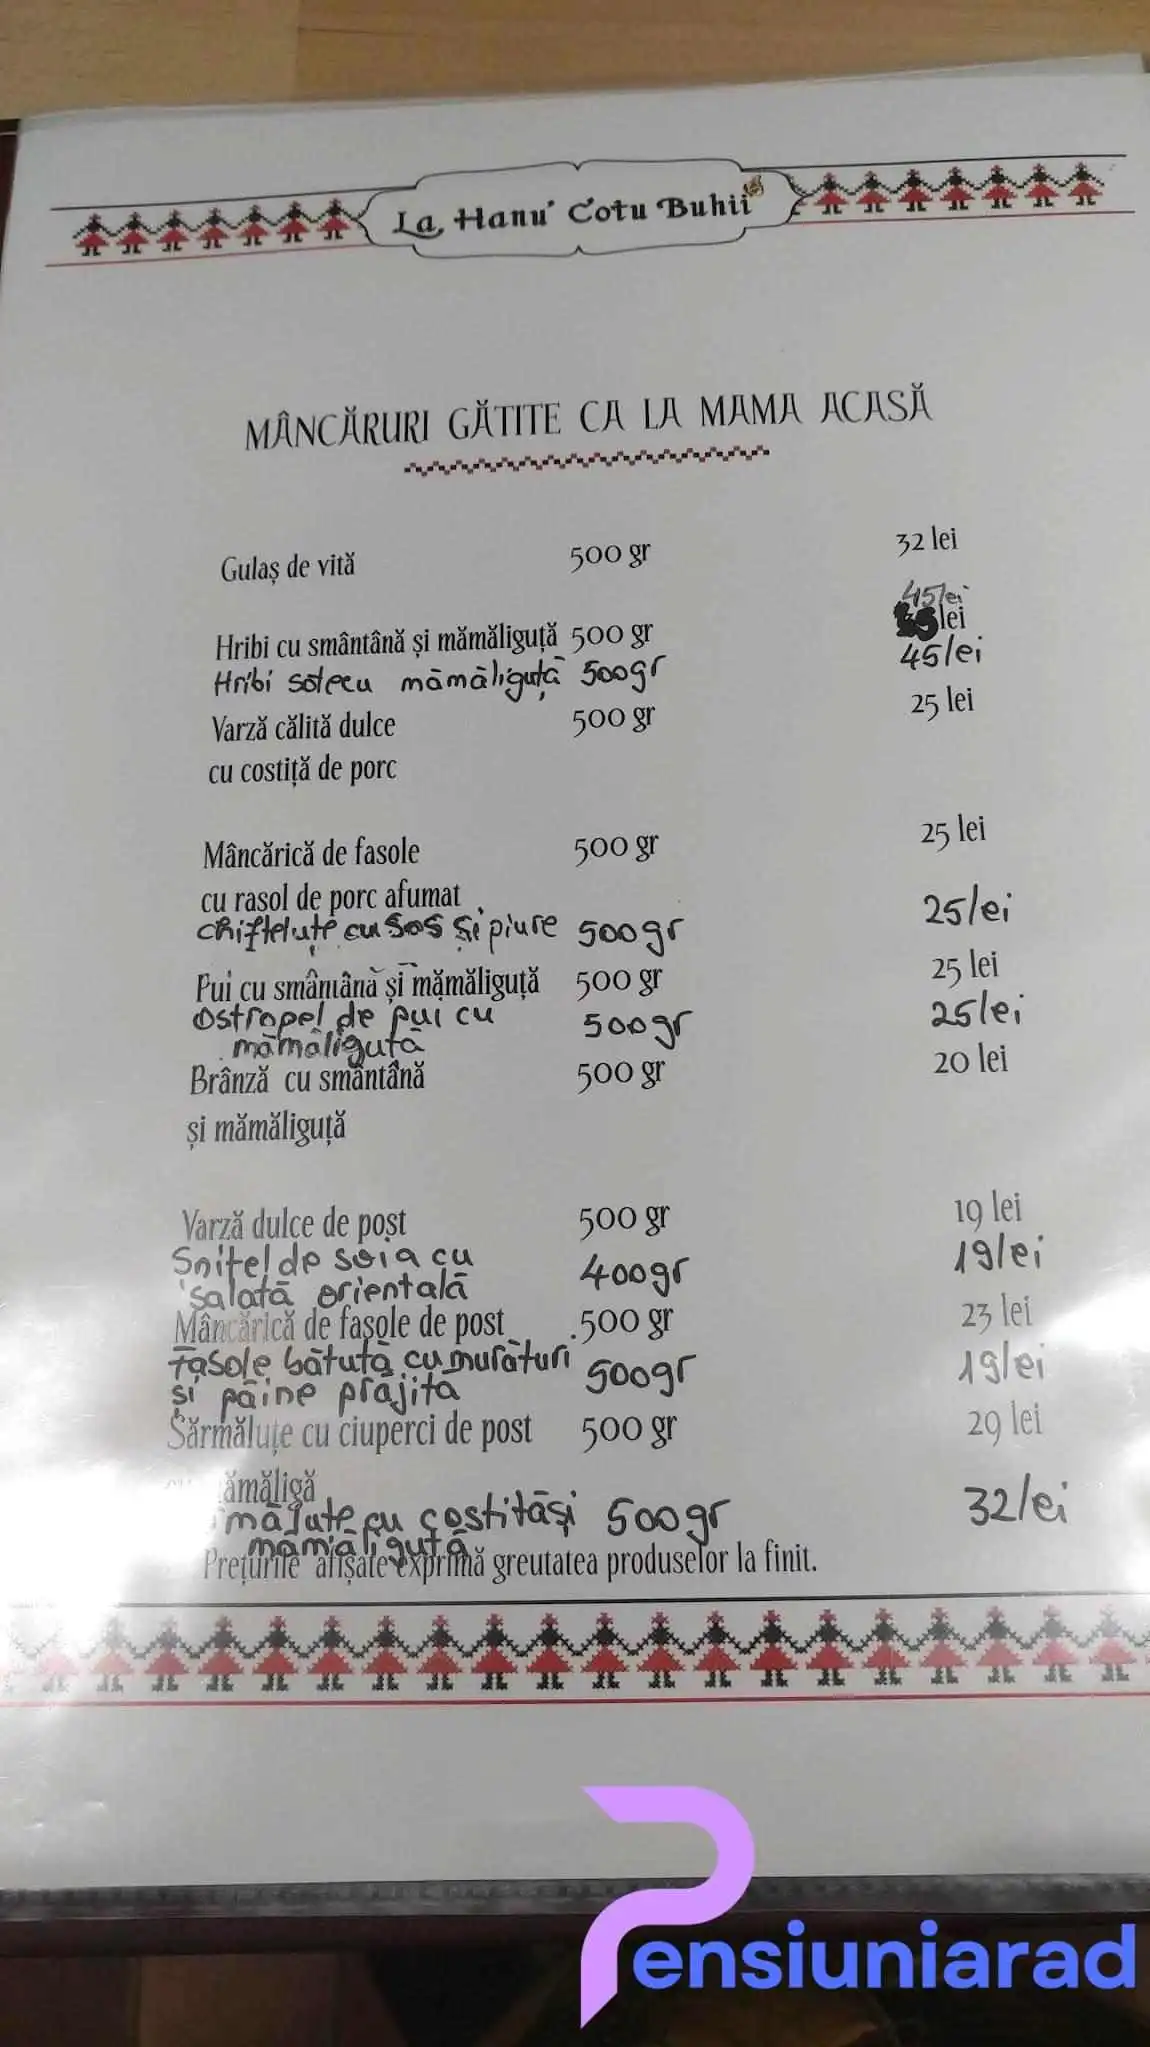 La Hanu' Cotu Buhii
MÂNCĂRURI GĂTITE CA LA MAMA ACASĂ
Gulaș de vită 500 gr 32 lei
45lei
Hribi cu smântână și mămăliguță 500 gr lei
Hribi sotecu mămăliguță 500gr 45lei
Varză călită dulce 500 gr 25 lei
cu costiță de porc
Mâncărică de fasole 500 gr 25 lei
cu rasol de porc afumat
chifteluțe cu sos și piure 500gr 25lei
Pui cu smântână și mămăliguță 500 gr 25 lei
Ostropel de pui cu 500gr 25lei
mămăliguță
Brânză cu smântână 500 gr 20 lei
și mămăliguță
Varză dulce de post 500 gr 19 lei
Șnițel de soia cu 400gr 19lei
salată orientală
Mâncărică de fasole de post .500 gr 23 lei
Fasole bătută cu murături 500gr 19lei
și pâine prăjită
Sărmăluțe cu ciuperci de post 500 gr 29 lei
cu costiță și 500gr 32lei
mămăliguță
Prețurile afișate exprimă greutatea produselor la finit.
Pensiuniarad